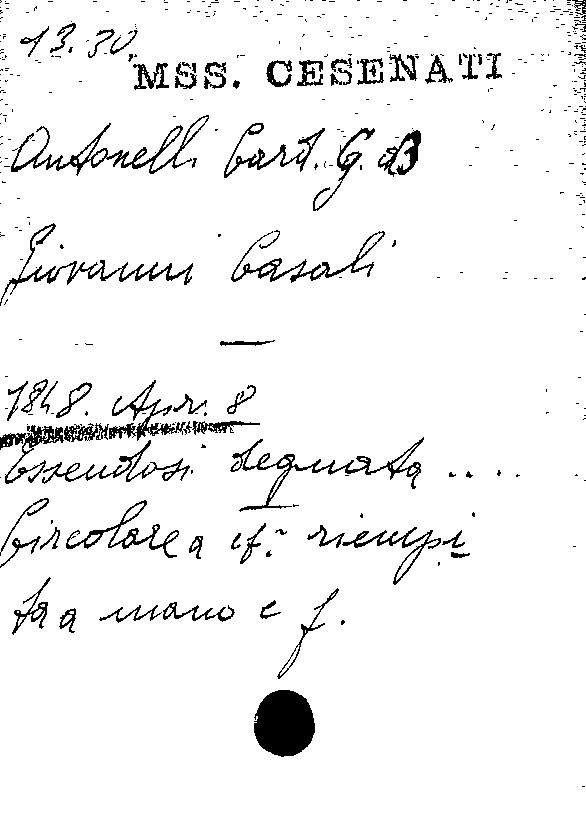 13.30.
MSS. CESENATI
Antonelli Card. G. B
Giovanni Casali
—
1848. Apr. 8
Essendosi degnata ....
Circolare a riempi
ta a mano e f.